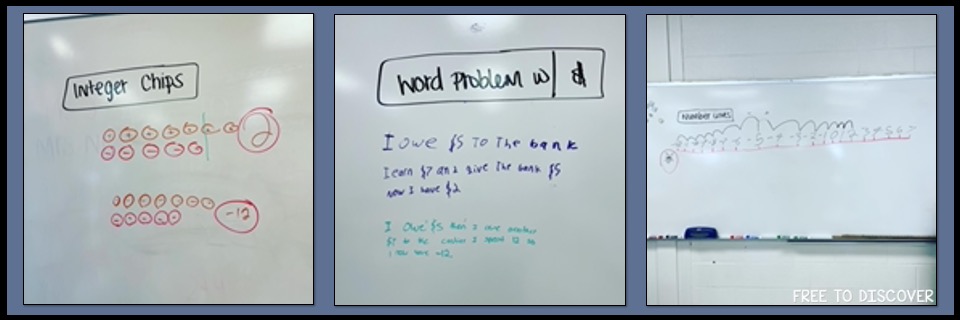 Integer Chips
2
-12
Word Problem w/ $
I owe $5 To The bank
I earn $7 and give The bank $5
now I have $2
I owe $5 then I owe another
$7 to the casino I spent 12 so
i now have -12
Number Lines
FREE TO DISCOVER